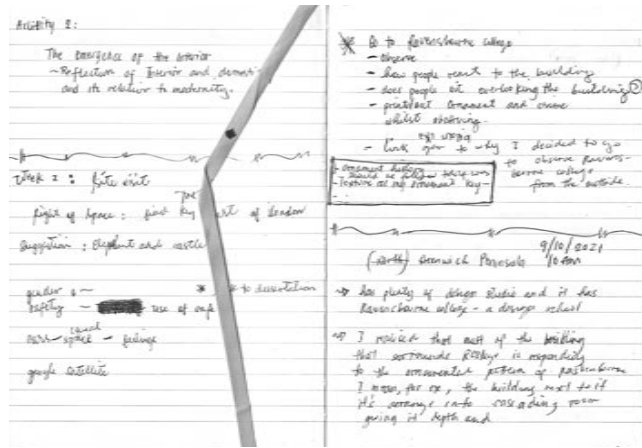 Activity 2:
The emergence of the interior
~ Reflection of Interior and domesti
and its relation to modernity.
Week 2 : Site visit
Right of Space : find key of London
Suggestion : Elephant and castle
gender ~ * * to dissertation
safety ~ use of cafe
space - feelings
google satellite
Go to Ravensbourne college
- observe
- how people react to the building
- does people sit overlooking the building?
- printout ornament and observe
whilst observing.
- link to why I decided to go
to observe Ravens-
bourne college
from the outside.
- ornament history
9/10/2021
(North) Greenwich Peninsula 10AM
has plenty of design studio and it has
Ravensbourne college - a design school
I realised that most of the building
that surrounds is responding
to the ornamental pattern of Ravensbourne
I mean, for ex, the building next to it
it's arrange into cascading
giving it depth and